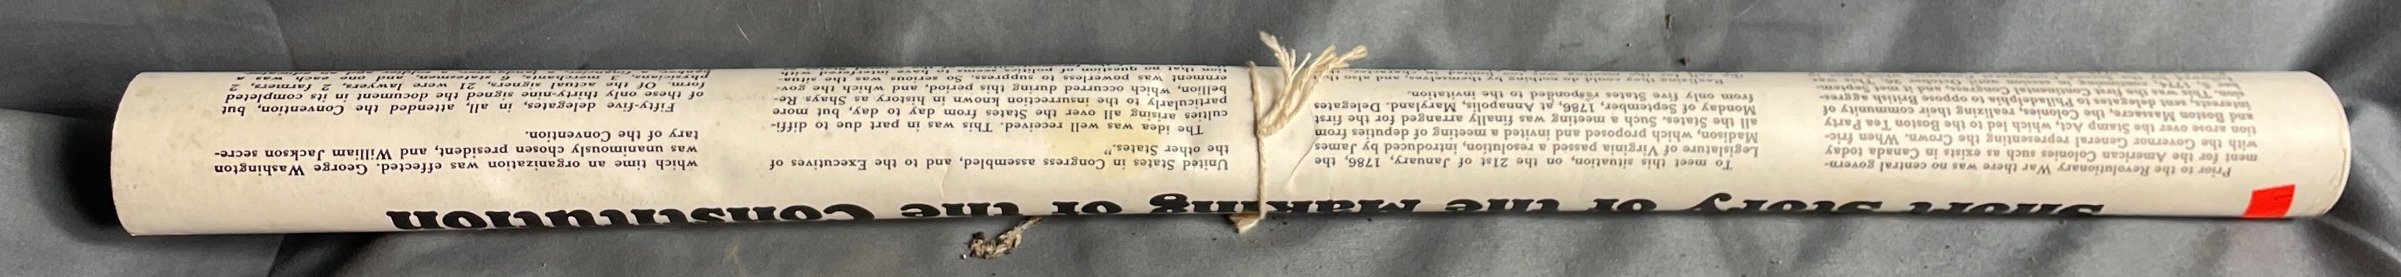 Short Story of the Making of the Constitution
Prior to the Revolutionary War there was no central govern-
ment for the American Colonies such as exists in Canada today
with the Governor General representing the Crown. When fric-
tion arose over the Stamp Act, which led to the Boston Tea Party
and Boston Massacre, the Colonies, realizing their community of
interests, sent delegates to Philadelphia to oppose British aggres-
sion. This was the first Continental Congress, and it met Septem-
To meet this situation, on the 21st of January, 1786, the
Legislature of Virginia passed a resolution, introduced by James
Madison, which proposed and invited a meeting of deputies from
all the States. Such a meeting was finally arranged for the first
Monday of September, 1786, at Annapolis, Maryland. Delegates
from only five States responded to the invitation.
they could do nothing by themselves, and
United States in Congress assembled, and to the Executives of
the other States."
The idea was well received. This was in part due to diffi-
culties arising all over the States from day to day, but more
particularly to the insurrection known in history as Shays Re-
bellion, which occurred during this period, and which the gov-
ernment was powerless to suppress. So serious was the situa-
tion that no question of politics seems to have interfered with
which time an organization was effected. George Washington
was unanimously chosen president, and William Jackson secre-
tary of the Convention.
Fifty-five delegates, in all, attended the Convention, but
of these only thirty-nine signed the document in its completed
form. Of the actual signers, 21 were lawyers, 2 farmers, 2
physicians, 9 merchants, 6 statesmen, and one each was a